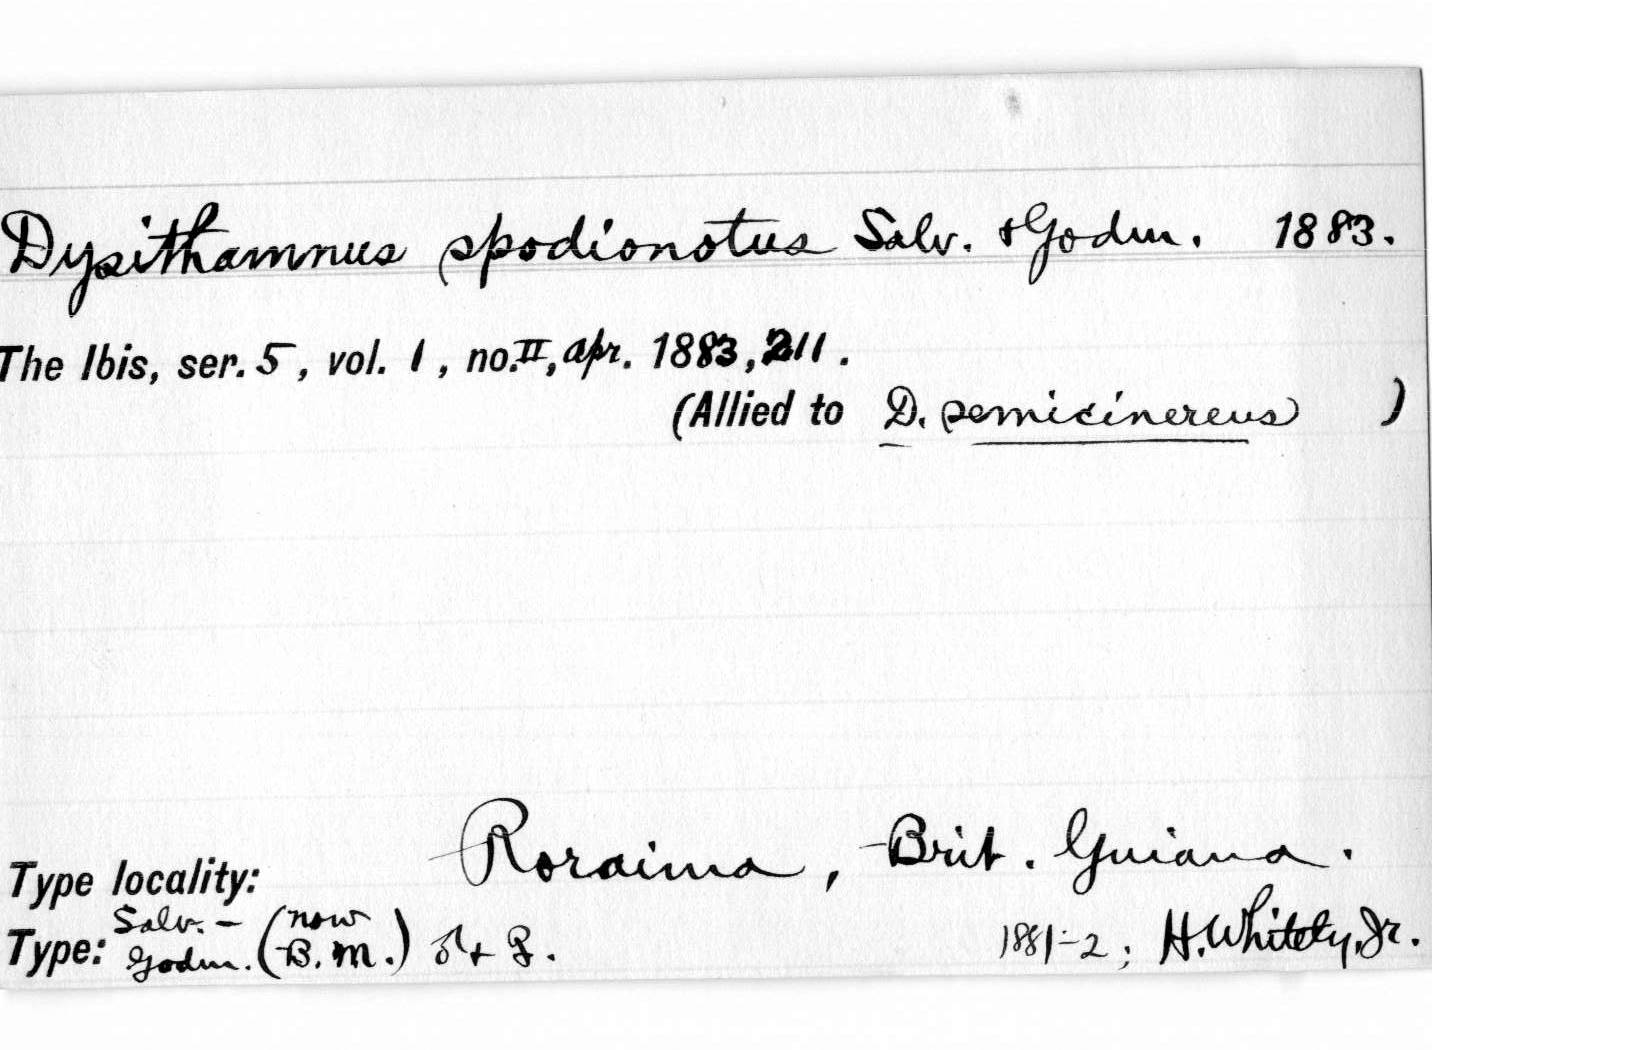 Dysithamnus spodionotus Salv. & Godm. 1883.
The Ibis, ser. 5, vol. 1, no. II, apr. 1883, 211.
(Allied to D. semicinereus )
Type locality: Roraima, Brit. Guiana.
Type: Salv. - Godm. (now B.M.) ♂ + ♀. 1881-2; H. Whitely, Jr.